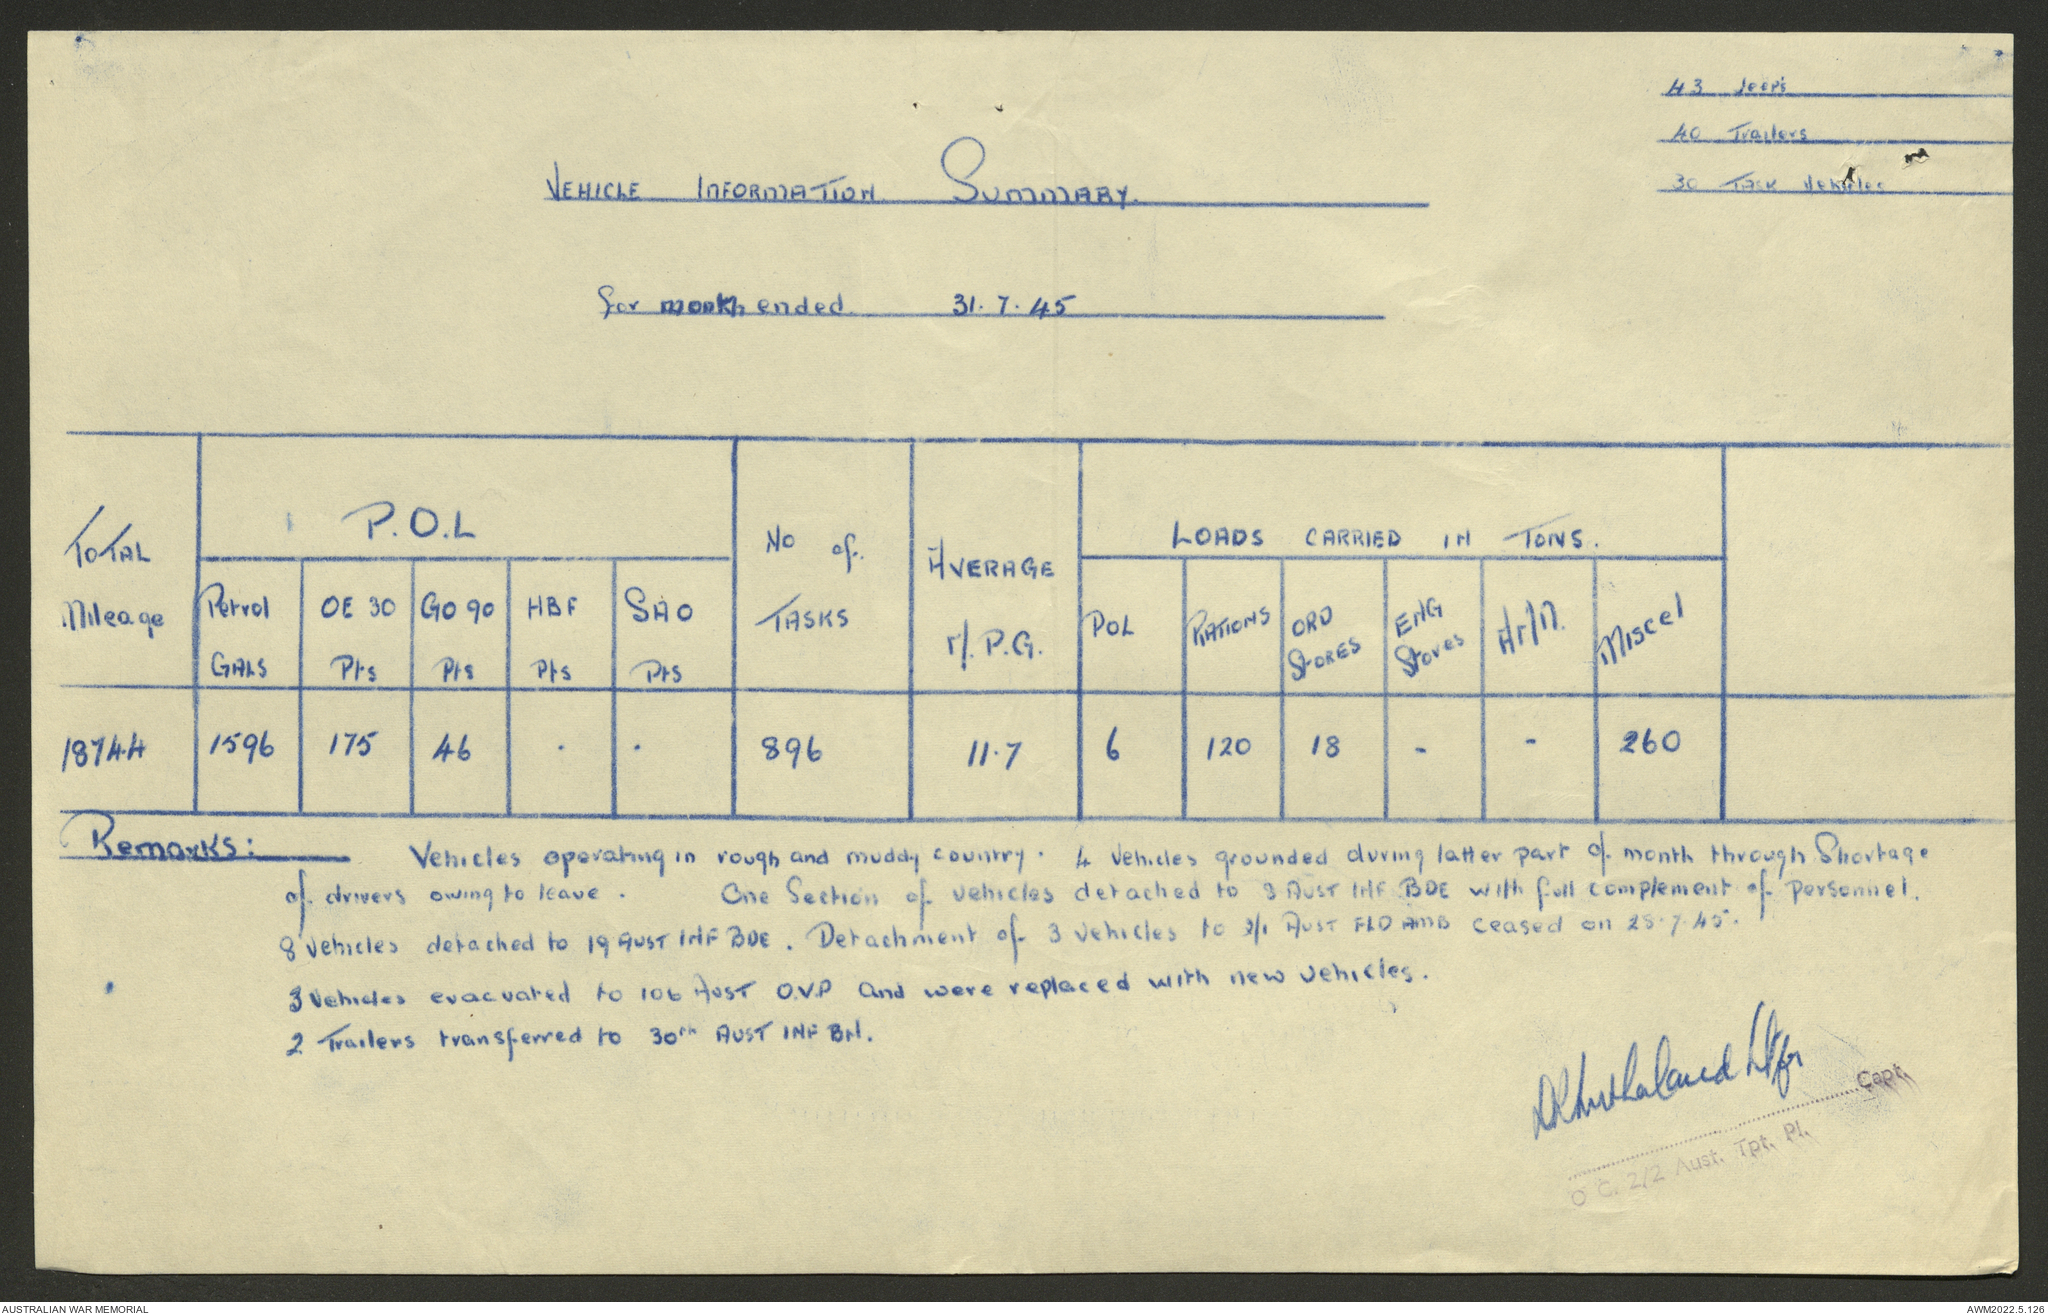 43 Jeeps
40 Trailers
30 Task Vehicles
VEHICLE INFORMATION SUMMARY.
for month ended 31.7.45
TOTAL Mileage
P.O.L
Petrol GALS
OE 30 Pts
GO 90 Pts
HBF Pts
SAO Pts
No of. TASKS
AVERAGE M.P.G.
LOADS CARRIED IN TONS.
POL
RATIONS
ORD STORES
ENG Stores
Miscel
18744 1596 175 46 . . 896 11.7 6 120 18 - - 260
Remarks: Vehicles operating in rough and muddy country. 4 Vehicles grounded during latter part of month through Shortage
of drivers owing to leave. One Section of vehicles detached to 8 AUST INF BDE with full complement of personnel.
8 Vehicles detached to 19 AUST INF BDE. Detachment of 3 vehicles to 3/1 AUST FLD AMB ceased on 28.7.45.
3 Vehicles evacuated to 106 AUST O.V.P and were replaced with new vehicles.
2 Trailers transferred to 30th AUST INF BN.
Capt.
O C. 2/2 Aust. Tpt. Pl.
AUSTRALIAN WAR MEMORIAL
AWM2022.5.126